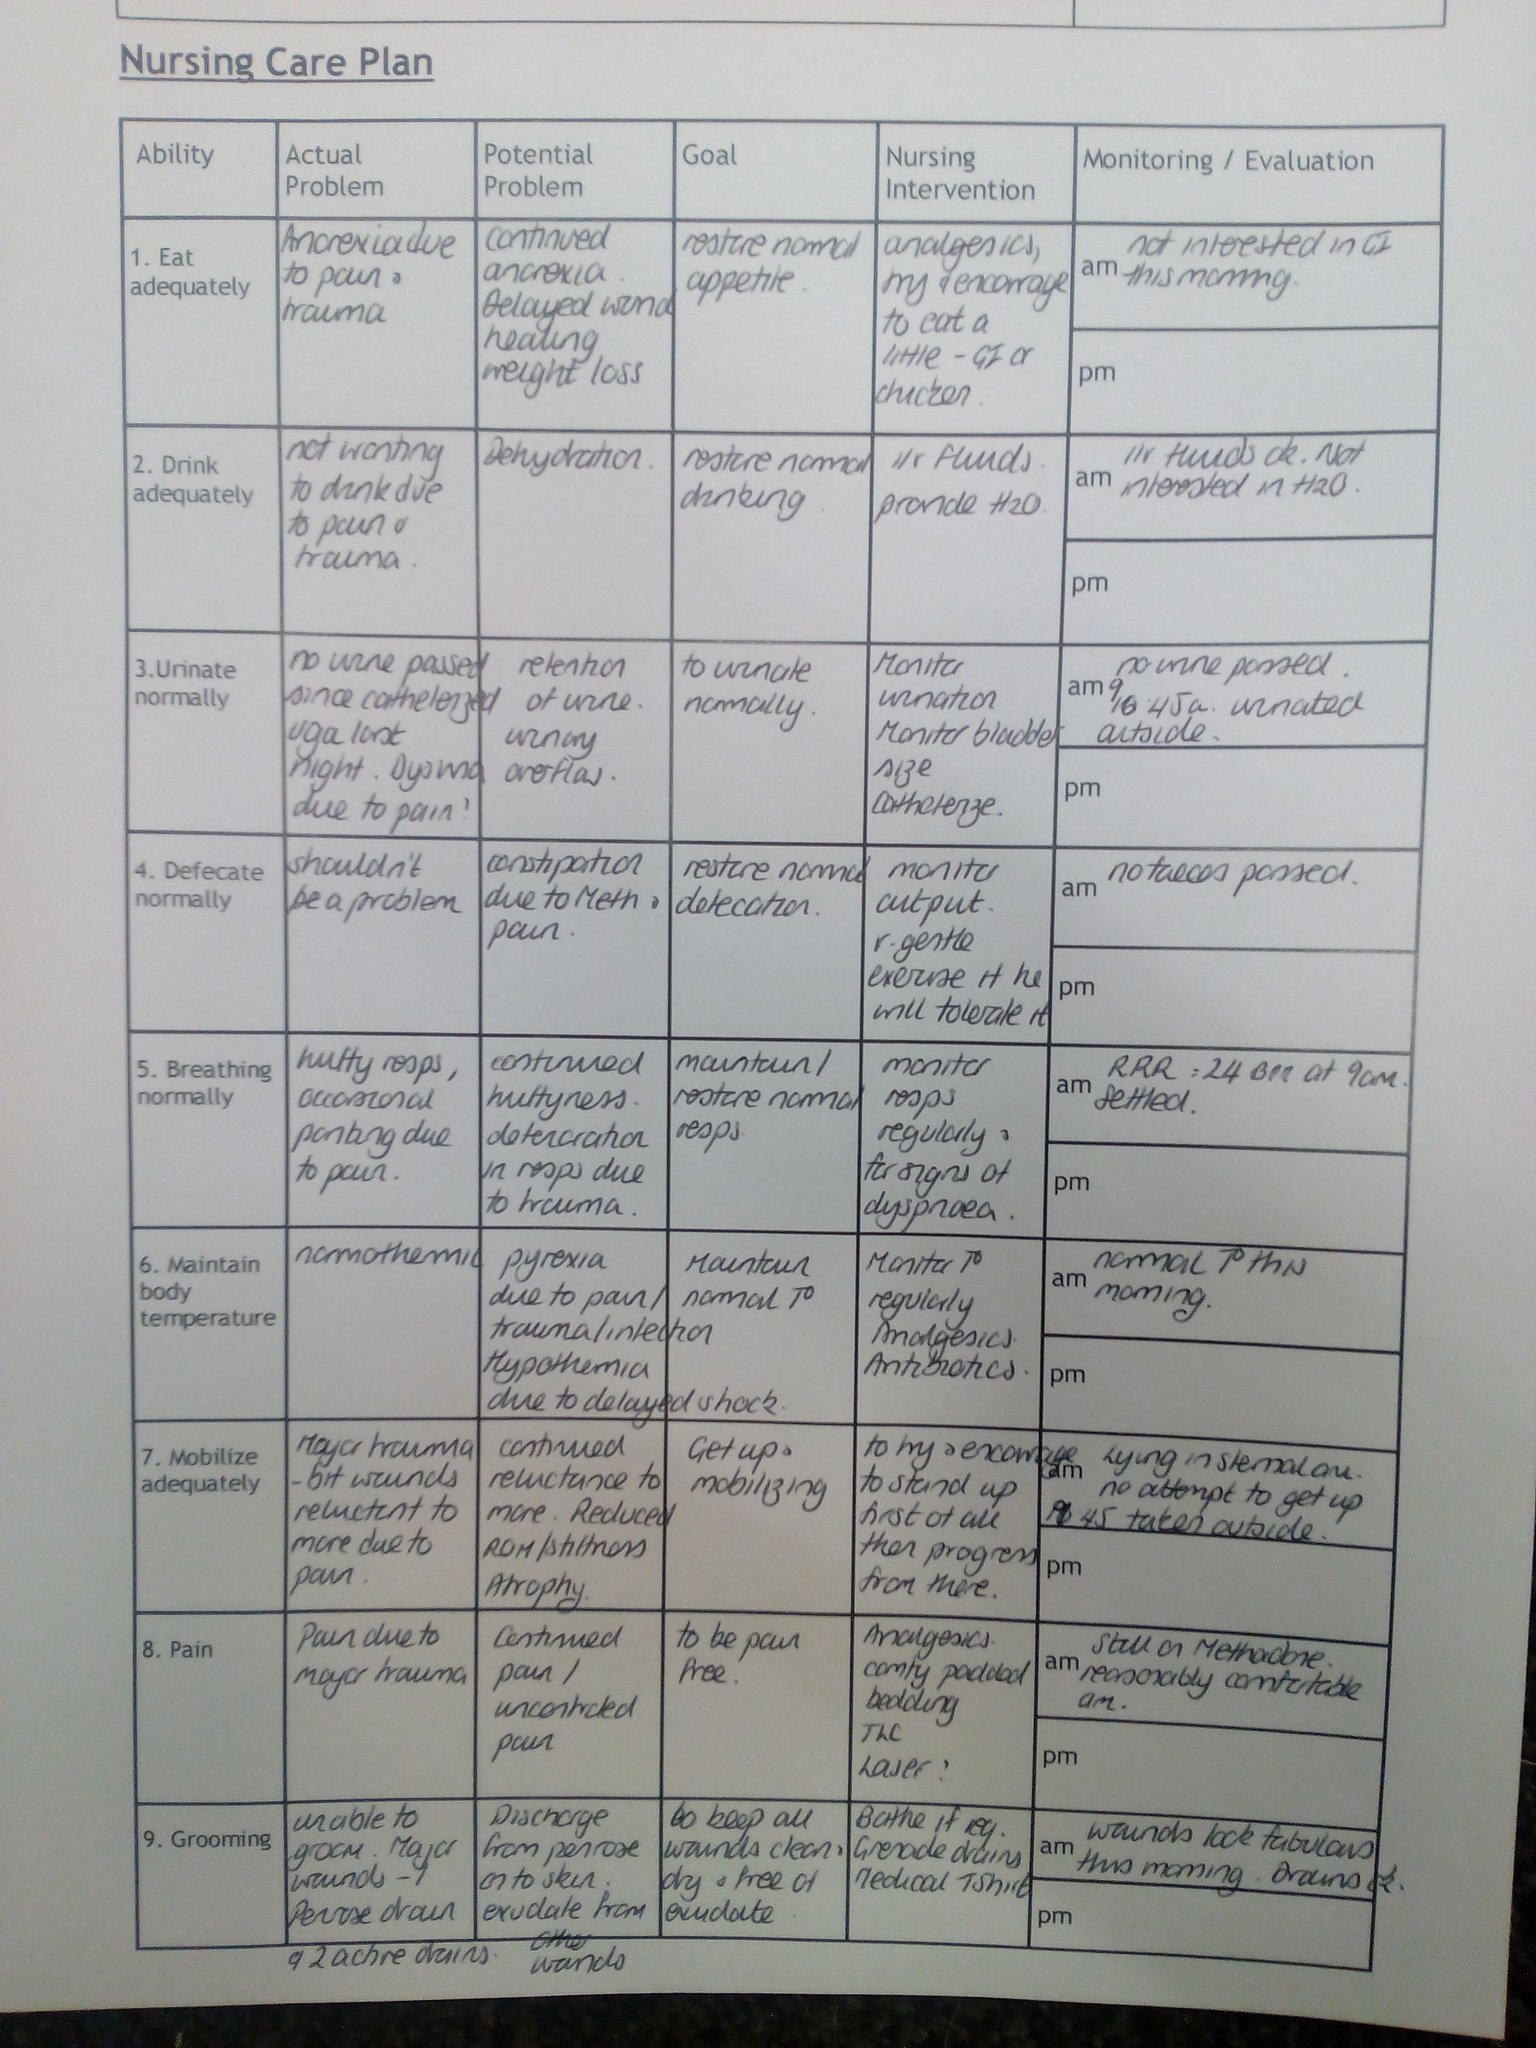 Nursing Care Plan
Ability
Actual
Problem
Potential
Problem
Goal
Nursing
Intervention
Monitoring / Evaluation
1. Eat
adequately
Anorexia due
to pain &
trauma
continued
anorexia.
Delayed wound
healing
weight loss
restore normal
appetite.
analgesics,
try & encourage
to eat a
little - GI or
chicken.
am
not interested in GI
this morning.
pm
2. Drink
adequately
not wanting
to drink due
to pain &
trauma.
Dehydration.
restore normal
drinking
fluids.
provide H2O.
am
fluids ok. Not
interested in H2O.
pm
3.Urinate
normally
no urine passed
since catheterized
last
night.
due to pain?
retention
of urine.
urinary
overflow.
to urinate
normally.
Monitor
urination
Monitor bladder
size
Catheterize.
am
no urine passed.
45 urinated
outside.
pm
4. Defecate
normally
shouldn't
be a problem
constipation
due to Meth &
pain.
restore normal
defecation.
monitor
output.
v. gentle
exercise if he
will tolerate it
am
no faeces passed.
pm
5. Breathing
normally
huffy resps,
occasional
panting due
to pain.
continued
huffyness.
deterioration
in resps due
to trauma.
maintain /
restore normal
resps.
monitor
resps
regularly &
for signs of
dyspnoea.
am
RRR = 24 at 9am.
Settled.
pm
6. Maintain
body
temperature
normothermic
pyrexia
due to pain /
trauma/infection
Hypothermia
due to delayed shock.
Maintain
normal To
Monitor To
regularly
Analgesics.
Antibiotics.
am
normal To this
morning.
pm
7. Mobilize
adequately
Major trauma
- bit wounds
reluctant to
move due to
pain.
continued
reluctance to
move. Reduced
ROM/stiffness
Atrophy.
Get up &
mobilizing
to try & encourage
to stand up
first of all
then progress
from there.
am
Lying in sternal am.
no attempt to get up
45 taken outside.
pm
8. Pain
Pain due to
major trauma
Continued
pain /
uncontrolled
pain
to be pain
free.
Analgesics.
comfy padded
bedding
TLC
Laser?
am
Still on Methadone.
reasonably comfortable
am.
pm
9. Grooming
unable to
groom. Major
wounds - 1
Penrose drain
& 2 active drains.
Discharge
from penrose
onto skin.
exudate from
other
wounds
to keep all
wounds clean &
dry & free of
exudate.
Bathe if req.
Grenade drains
Medical Tshirt
am
wounds look fabulous
this morning. Drains ok.
pm